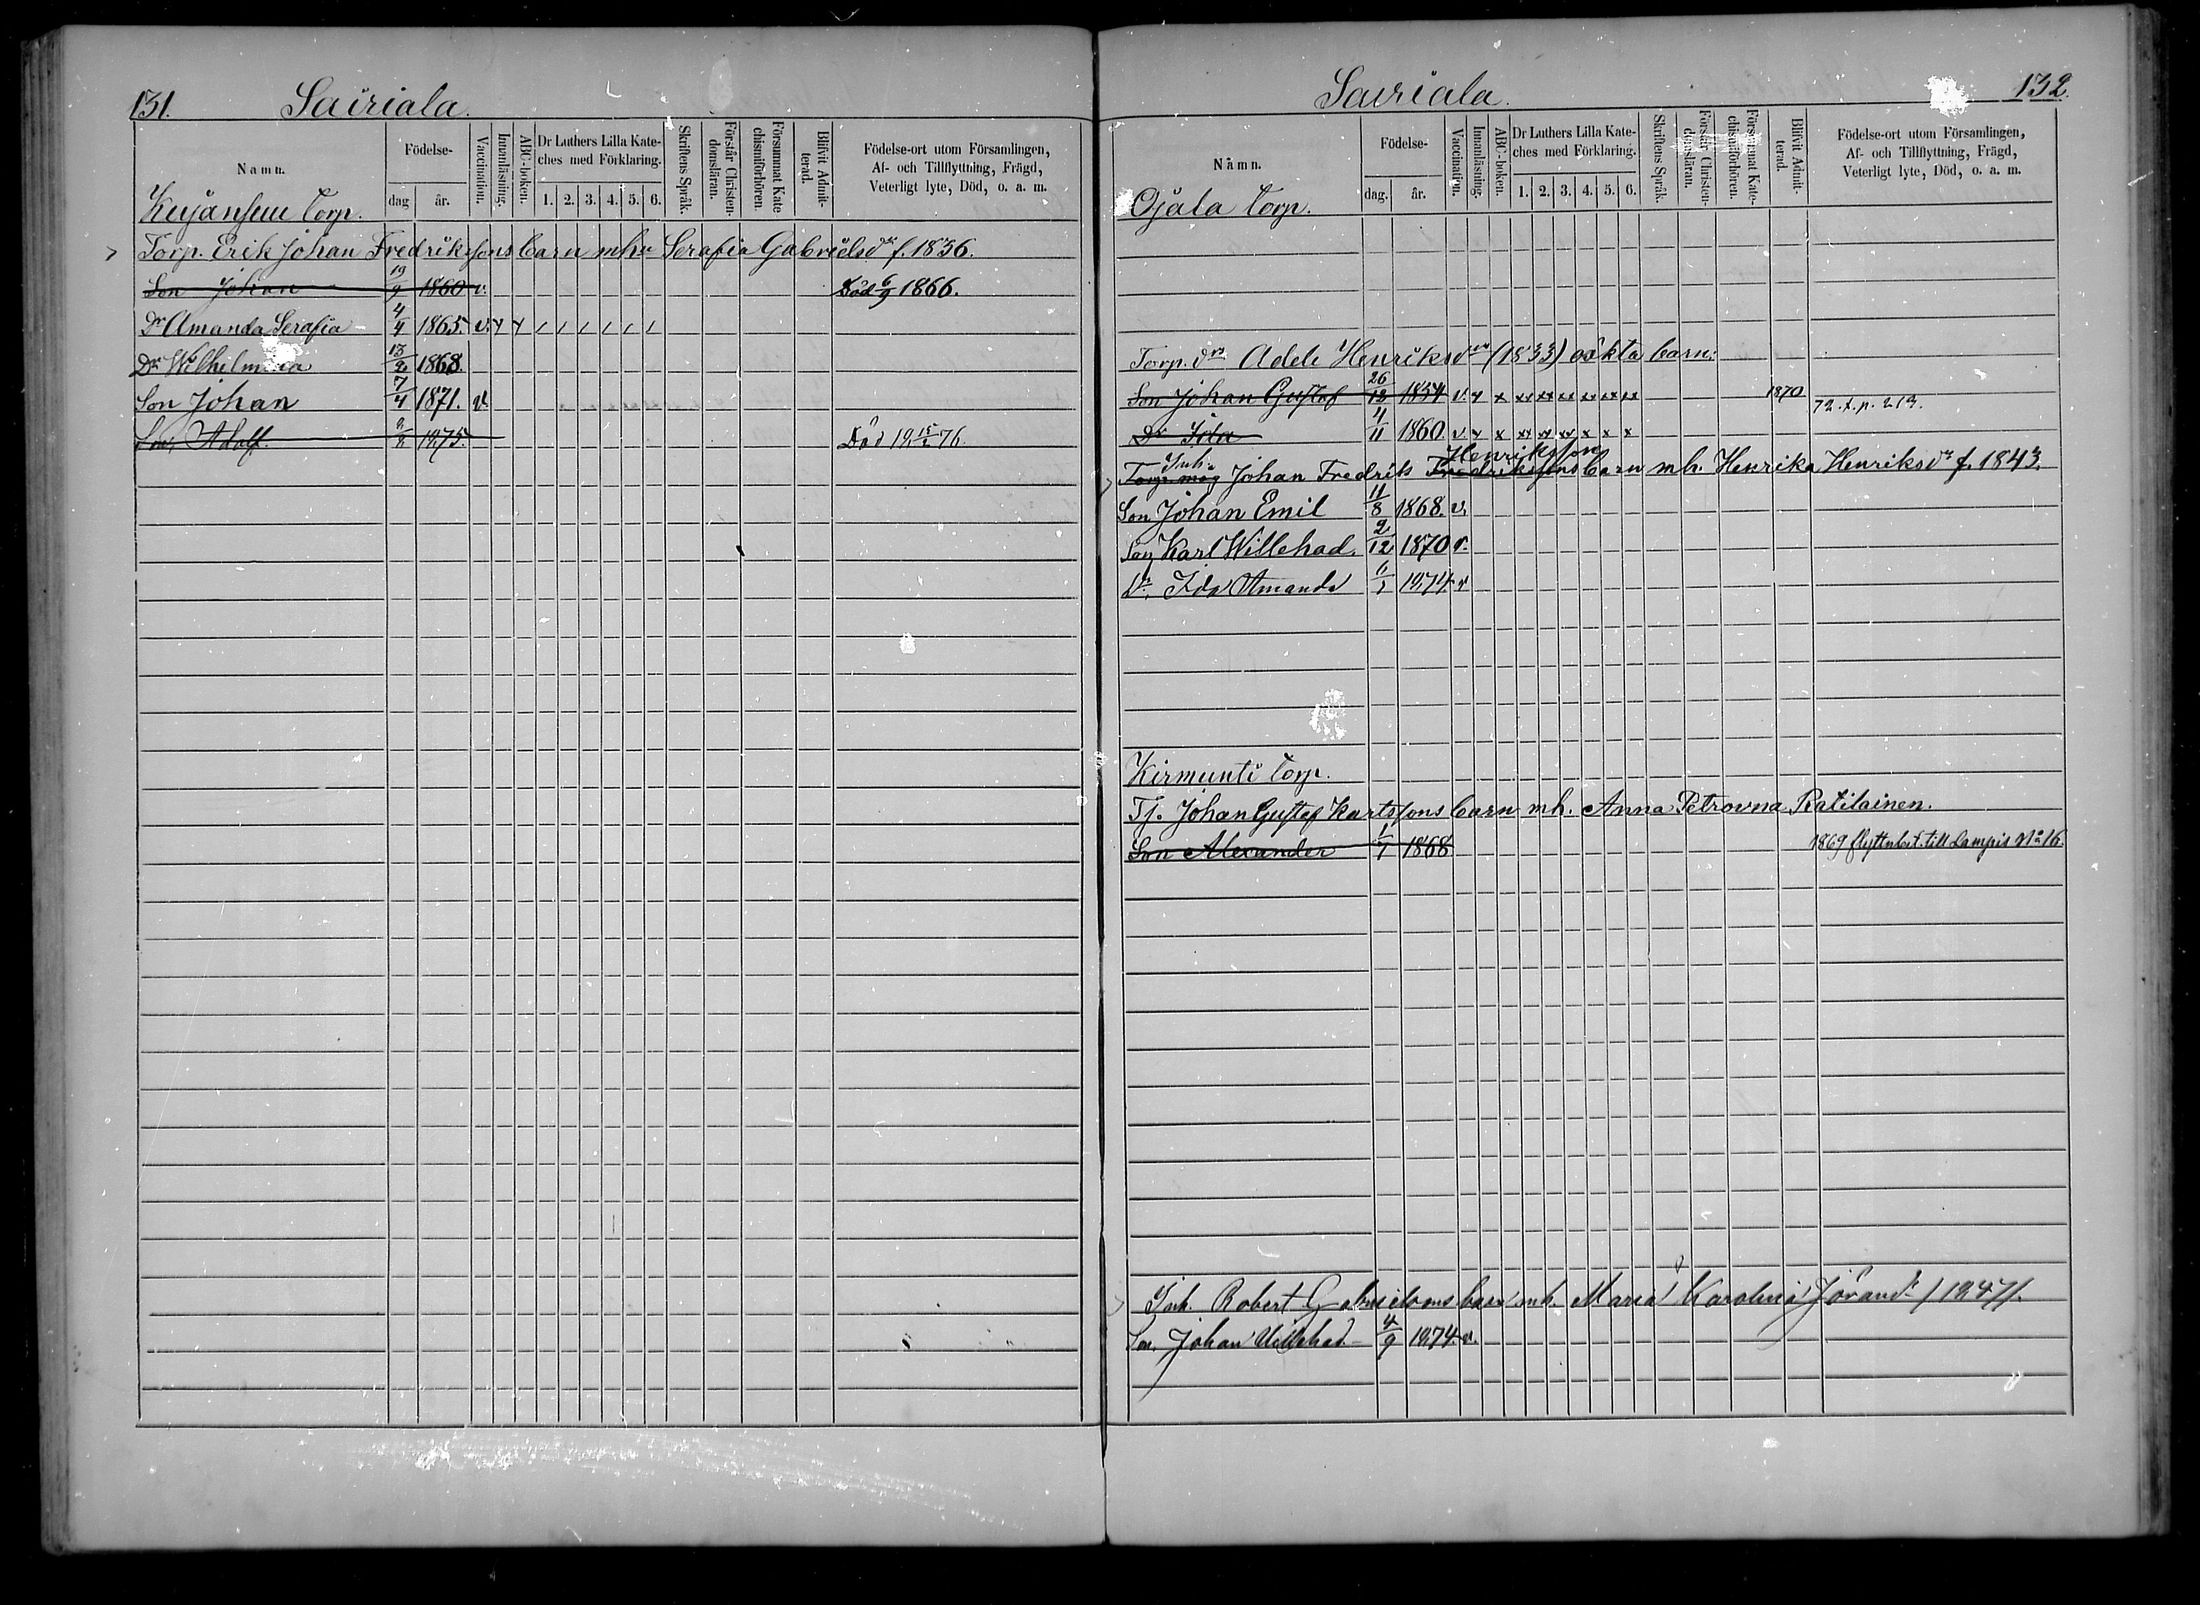 131.
Sairiala.
Namn.
Födelse-
dag
år.
Vaccination.
Innanläsning.
ABC-boken.
Dr Luthers Lilla Kate-
ches med Förklaring.
1. 2. 3. 4. 5. 6.
Skriftens Språk.
Förstår Christen-
domsläran.
Försummat Kate
chismiförhören.
Blifvit Admit-
terad.
Födelse-ort utom Församlingen,
Af- och Tillflyttning, Frägd,
Veterligt lyte, Död, o. a. m.
Kujansuu Torp.
Torp. Erik Johan Fredrikssons barn mhu Serafia Gabrielsdr f. 1836.
Son Johan 19/9 1860 v. Död 6/9 1866.
Dr Amanda Serafia 4/4 1865. v. x x / / / / / /
Dr Wilhelmina 13/2 1868.
Son Johan 7/4 1871. v.
Son, Adolf. 2/2 1875. Död 18 15/2 76.
Sairiala.
132.
Namn.
Födelse-
dag.
år.
Vaccination.
Innanläsning.
ABC-boken.
Dr Luthers Lilla Kate-
ches med Förklaring.
1. 2. 3. 4. 5. 6.
Skriftens Språk.
Förstår Christen-
domsläran.
Försummat Kate-
chismiförhören.
Blifvit Admit-
terad.
Födelse-ort utom Församlingen,
Af- och Tillflyttning, Frägd,
Veterligt lyte, Död, o. a. m.
Ojala Torp.
Torp. drs Adele Henriksdrs (1833) oäkta barn:
Son Johan Gustaf 26/12 1854 v. x x xx xx xx xx xx xx 1870
72. t. p. 213.
Dr Ida 4/11 1860. v. x x xx xx xx x x x
Inh. Henriksson
Torp. måg Johan Fredrik Fredrikssons barn mh. Henrika Henriksdr f. 1843.
Son Johan Emil 11/8 1868. v.
Son Karl Willehad. 2/12 1870 v.
Dr, Ida Amanda 6/1 1874. v
Kirmunti Torp.
Tj. Johan Gustaf Karlssons barn mh. Anna Petrovna Ratilainen.
Son Alexander 1/1 1868 1869 flyttnbet. till Lampis No 16.
Inh. Robert Gabrielsons barn mh. Maria Karolina Jörandr f 1847.
Son, Johan Willehad 4/9 1874. v.